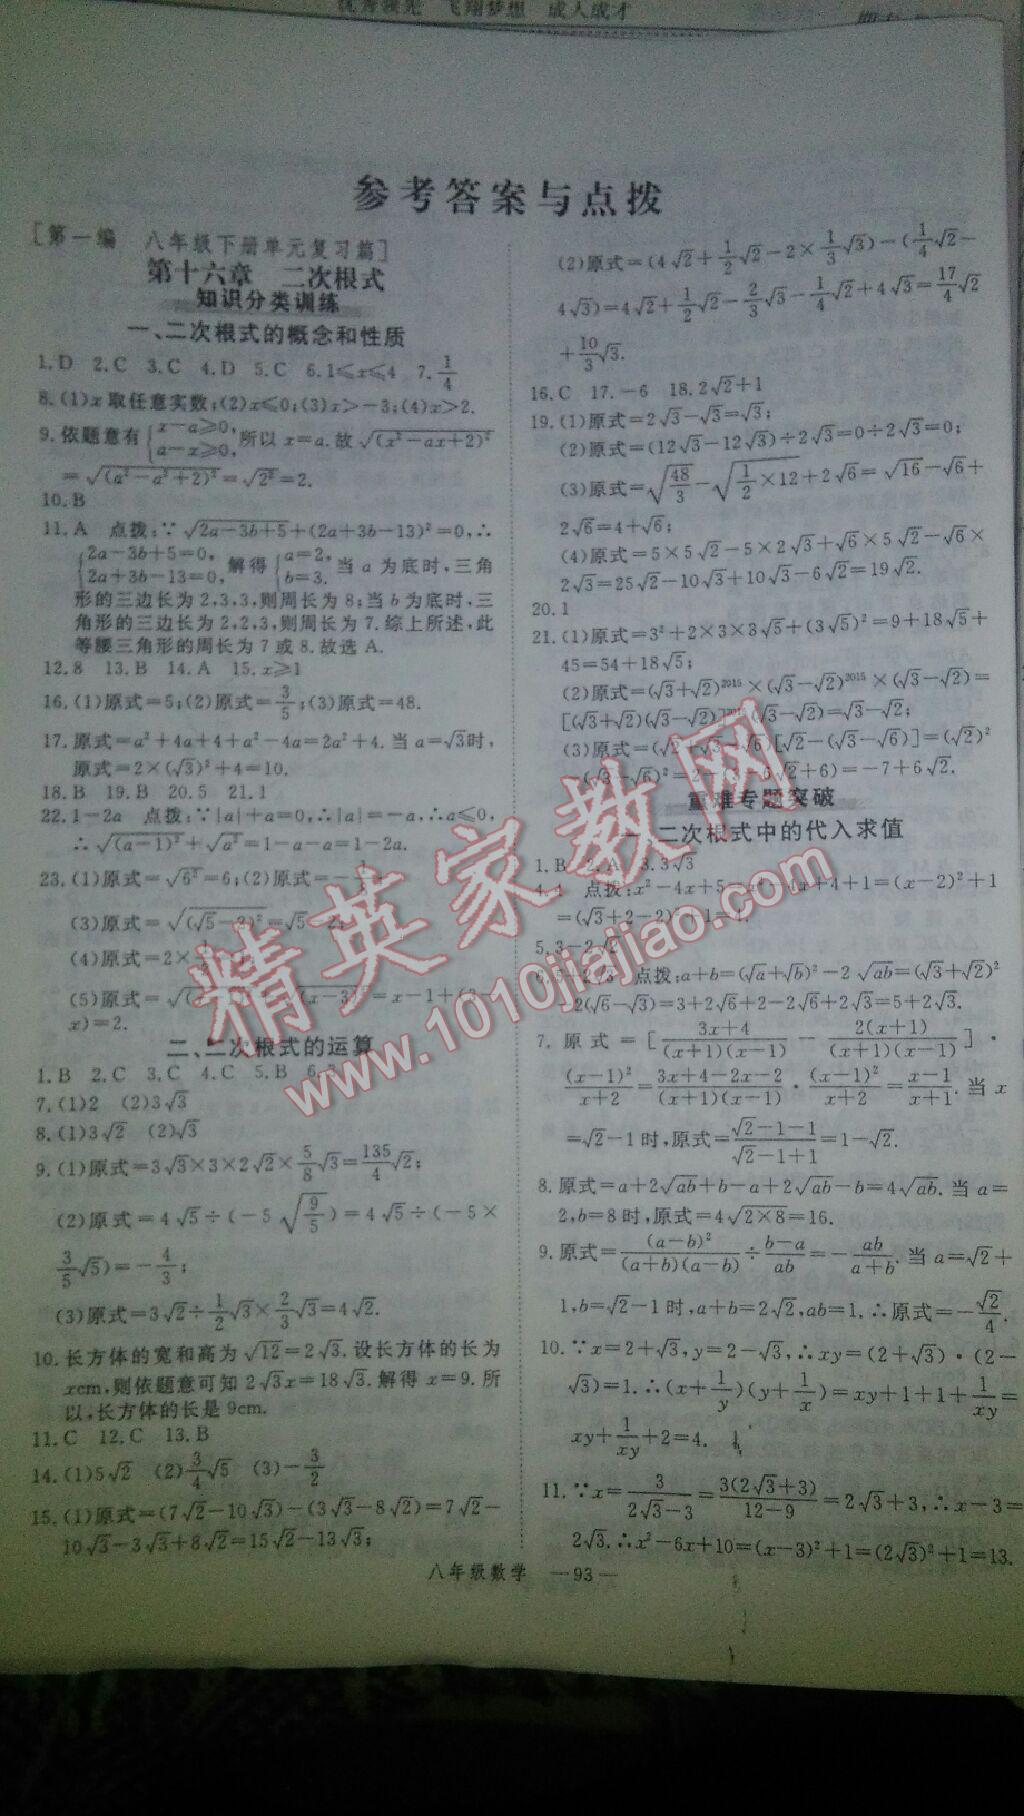 优秀领先 飞翔梦想 成人成才
参考答案与点拨
[第一编 八年级下册单元复习篇]
第十六章 二次根式
知识分类训练
一、二次根式的概念和性质
1.D 2.C 3.C 4.D 5.C 6.1≤x≤4 7.1/4
8.(1)x取任意实数;(2)x≤0;(3)x>-3;(4)x>2.
9.依题意有{x-a≥0, a-x≥0, 所以x=a.故√(x²-ax+2)²
=√(a²-a²+2)²=√2²=2.
10.B
11.A 点拨:∵√(2a-3b+5)+(2a+3b-13)²=0,∴
{2a-3b+5=0, 2a+3b-13=0, 解得{a=2, b=3. 当a为底时,三角
形的三边长为2,3,3,则周长为8;当b为底时,三
角形的三边长为2,2,3,则周长为7.综上所述,此
等腰三角形的周长为7或8.故选A.
12.8 13.B 14.A 15.x≥1
16.(1)原式=5;(2)原式=3/5;(3)原式=48.
17.原式=a²+4a+4+a²-4a=2a²+4.当a=√3时,
原式=2×(√3)²+4=10.
18.B 19.B 20.5 21.1
22.1-2a 点拨:∵|a|+a=0,∴|a|=-a,∴a≤0,
∴√(a-1)²+√a²=1-a-a=1-2a.
23.(1)原式=√6²=6;(2)原式=-
(3)原式=√(√5-2)²=√5-2;
(4)原式=2×
(5)原式= (x-3)²=x-1+(3-
x)=2.
二、二次根式的运算
1.B 2.C 3.C 4.C 5.B 6.
7.(1)2 (2)3√3
8.(1)3√2 (2)√3
9.(1)原式=3√3×3×2√2×5/8√3=135/4√2;
(2)原式=4√5÷(-5√(9/5))=4√5÷(-5×
3/5√5)=-4/3;
(3)原式=3√2÷1/2√3×2/3√3=4√2.
10.长方体的宽和高为√12=2√3.设长方体的长为
xcm,则依题意可知2√3x=18√3.解得x=9.所
以,长方体的长是9cm.
11.C 12.C 13.B
14.(1)5√2 (2)3/4√5 (3)-3/2
15.(1)原式=(7√2-10√3)-(3√3-8√2)=7√2-
10√3-3√3+8√2=15√2-13√3;
(2)原式=(4√2+1/2√2-2×1/3√3)-(1/4√2-
4√3)=4√2+1/2√2-2/3√3-1/4√2+4√3=17/4√2
+10/3√3.
16.C 17.-6 18.2√2+1
19.(1)原式=2√3-√3=√3;
(2)原式=(12√3-12√3)÷2√3=0÷2√3=0;
(3)原式=√(48/3)-√(1/2×12)+2√6=√16-√6+
2√6=4+√6;
(4)原式=5×5√2-5×2√3+√6×5√2-√6×
2√3=25√2-10√3+10√3-6√2=19√2.
20.1
21.(1)原式=3²+2×3×3√5+(3√5)²=9+18√5+
45=54+18√5;
(2)原式=(√3+√2)²⁰¹⁵×(√3-√2)²⁰¹⁵×(√3-√2)=
[(√3+√2)(√3-√2)]²⁰¹⁵(√3-√2)=√3-√2;
(3)原式=(√2+√3-√6)[√2-(√3-√6)]=(√2)²
-(√3-√6)²=2-(3-6√2+6)=-7+6√2.
重难专题突破
一、二次根式中的代入求值
1.B 2.A 3.3√3
4.4 点拨:x²-4x+5=x²-4x+4+1=(x-2)²+1
=(√3+2-2)²+1=4.
5.3-2√2
6.5+2√3 点拨:a+b=(√a+√b)²-2√ab=(√3+√2)²
-2(√6-√3)=3+2√6+2-2√6+2√3=5+2√3.
7.原式=[(3x+4)/((x+1)(x-1))-2(x+1)/((x+1)(x-1))]·
(x-1)²/(x+2)=(3x+4-2x-2)/((x+1)(x-1))·(x-1)²/(x+2)=(x-1)/(x+1).当x
=√2-1时,原式=(√2-1-1)/(√2-1+1)=1-√2.
8.原式=a+2√ab+b-a+2√ab-b=4√ab.当a=
2,b=8时,原式=4√(2×8)=16.
9.原式=(a-b)²/((a+b)(a-b))÷(b-a)/ab=-ab/(a+b).当a=√2+
1,b=√2-1时,a+b=2√2,ab=1.∴原式=-√2/4.
10.∵x=2+√3,y=2-√3,∴xy=(2+√3)·(2-
√3)=1.∴(x+1/y)(y+1/x)=xy+1+1+1/xy=
xy+1/xy+2=4.
11.∵x=3/(2√3-3)=3(2√3+3)/(12-9)=2√3+3,∴x-3=
2√3.∴x²-6x+10=(x-3)²+1=(2√3)²+1=13.
八年级数学 —93—
精英家教网
www.1010jiajiao.com